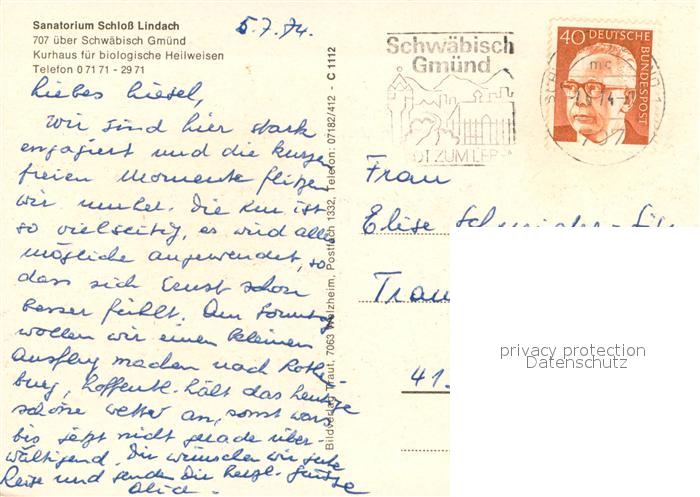 Sanatorium Schloß Lindach
707 über Schwäbisch Gmünd
Kurhaus für biologische Heilweisen
Telefon 0 71 71 - 29 71
5.7.74.
Liebes Liesel,
Wir sind hier stark
engagiert und die kurzen
freien Momente flitzen
wir umher. Die Kur ist
so vielseitig, es wird alles
mögliche angewendet, so
dass sich Ernst schon
besser fühlt. Am Sonntag
wollen wir einen kleinen
Ausflug machen nach Rothen-
burg, hoffentl. hält das heutige
schöne Wetter an, sonst war's
bis jetzt nicht gerade über-
wältigend. Dir wünschen wir gute
Reise und senden Dir herzl. Grüsse
Bildverlag Traut, 7063 Welzheim, Postfach 1332, Telefon: 07182/412 - C 1112
Schwäbisch
Gmünd
40 DEUTSCHE
BUNDESPOST
Frau
Elise
41
privacy protection
Datenschutz